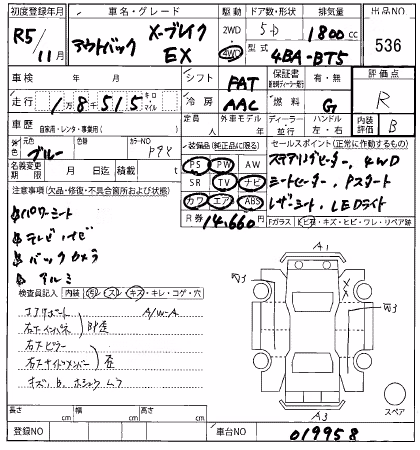 初度登録年月 車名・グレード 駆動 ドア数・形状 排気量 出品NO
R5/11月 アウトバック X-ブレイク EX 2WD 4WD 5D 1800cc 536
型式 4BA-BT5
車検 年 月 シフト FAT 保証書 有・無 評価点
走行 1万8千515 キロ・マイル 冷房 AAC 燃料 G R
車歴 自家用・レンタ・事業用( ) 定員 人 外車モデル 年 ディーラー 並行 ハンドル 左・右 内装評価 B
色 元色 ブルー 色替 カラーNO
装備品(純正品に限る) セールスポイント(正常に作動するもの)
名義変更期限 月 日迄 積載 t
PS PW AW ステアリングヒーター、4WD
SR TV ナビ シートヒーター、Pスタート
カワ エアB ABS レザーシート、LEDライト
注意事項(欠品・修復・不具合箇所および状態)
R券 14,660円 Fガラス ヒビ・キズ・ヒビ・ワレ・リペア跡
パワーシート
テレビ・ナビ
バックカメラ
アルミ
検査員記入 内装 汚レ・スレ・キズ・キレ・コゲ・穴
コアサポート A/W-A
右F インパネ
右Fピラー
右Fサイドメンバー
キズ、
A1
X
X
A3
スペア
長さ cm 幅 cm 高さ cm
登録NO 車台NO 019958